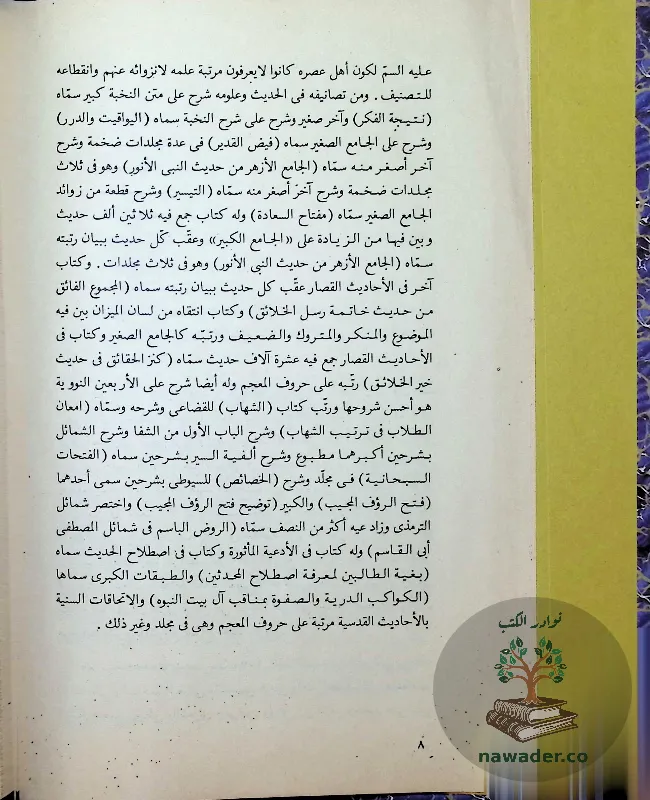 عليه السمّ لكون أهل عصره كانوا لايعرفون مرتبة علمه لانزوائه عنهم وانقطاعه
للتصنيف . ومن تصانيفه فى الحديث وعلومه شرح على متن النخبة كبير سمّاه
(نتيجة الفكر) وآخر صغير وشرح على شرح النخبة سماه (اليواقيت والدرر)
وشرح على الجامع الصغير سماه (فيض القدير) فى عدة مجلدات ضخمة وشرح
آخر أصغر منه سمّاه (الجامع الأزهر من حديث النبى الأنور) وهو فى ثلاث
مجلدات ضخمة وشرح آخر أصغر منه سمّاه (التيسير) وشرح قطعة من زوائد
الجامع الصغير سمّاه (مفتاح السعادة) وله كتاب جمع فيه ثلاثين ألف حديث
وبين فيها من الزيادة على «الجامع الكبير» وعقّب كلّ حديث ببيان رتبته
سمّاه (الجامع الأزهر من حديث النبى الأنور) وهو فى ثلاث مجلدات . وكتاب
آخر فى الأحاديث القصار عقّب كل حديث ببيان رتبته سماه (المجموع الفائق
من حديث خاتمة رسل الخلائق) وكتاب انتقاه من لسان الميزان بين فيه
الموضوع والمنكر والمتروك والضعيف ورتبّه كالجامع الصغير وكتاب فى
الأحاديث القصار جمع فيه عشرة آلاف حديث سمّاه (كنز الحقائق فى حديث
خير الخلائق) رتّبه على حروف المعجم وله أيضا شرح على الأربعين النووية
هو أحسن شروحها ورتّب كتاب (الشهاب) للقضاعى وشرحه وسمّاه (امعان
الطلاب فى ترتيب الشهاب) وشرح الباب الأول من الشفا وشرح الشمائل
بشرحين أكبرهما مطبوع وشرح ألفية السير بشرحين سماه (الفتحات
السبحانية) فى مجلّد وشرح (الخصائص) للسيوطى بشرحين سمى أحدهما
(فتح الرؤف المجيب) والكبير (توضيح فتح الرؤف المجيب) واختصر شمائل
الترمذى وزاد عيه أكثر من النصف سمّاه (الروض الباسم فى شمائل المصطفى
أبى القاسم) وله كتاب فى الأدعية المأثورة وكتاب فى اصطلاح الحديث سماه
(بغية الطالبين لمعرفة اصطلاح المحدثين) والطبقات الكبرى سماها
(الكواكب الدرية والصفوة بمناقب آل بيت النبوه) والإتحاقات السنية
بالأحاديث القدسية مرتبة على حروف المعجم وهى فى مجلد وغير ذلك .
نوادر الكتب
nawader.co
٨